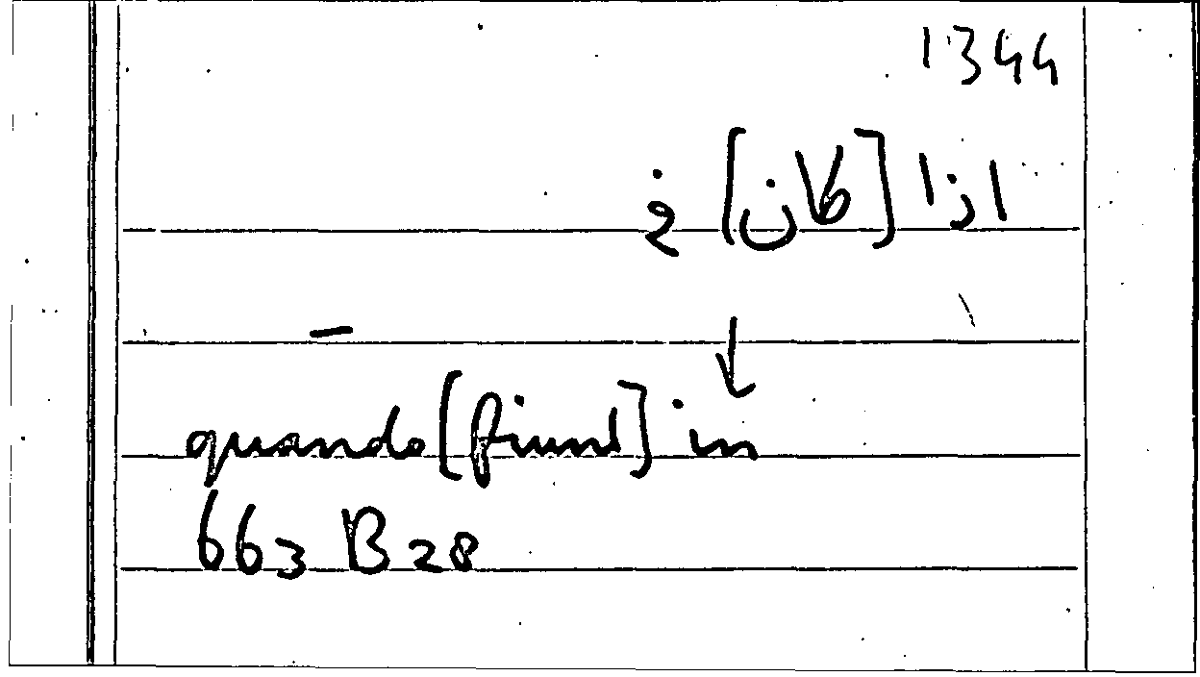 1344
اذا [كان] في
– ↓
quando [fiunt] in
663 B 28